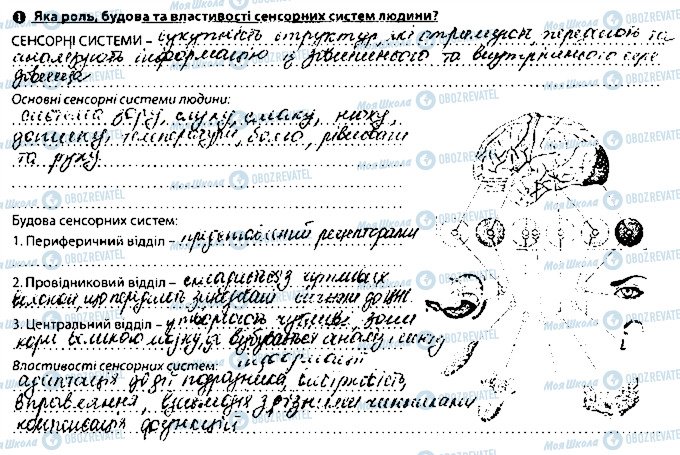 1 Яка роль, будова та властивості сенсорних систем людини?
СЕНСОРНІ СИСТЕМИ – сукупність структур, які отримують передають та
аналізують інформацію із зовнішнього та внутрішнього сере
довища
Основні сенсорні системи людини:
система зору, слуху, смаку, нюху,
дотику, температури, болю, рівноваги
та руху
Будова сенсорних систем:
1. Периферичний відділ – представлений рецепторами
2. Провідниковий відділ – складається з чутливих
волокон, що передають
3. Центральний відділ – утворюють чутливі зони
кори великого мозку, де відбувається аналіз
інформації
Властивості сенсорних систем:
адаптація до дії подразника,
вправляння, взаємодія з різними чинниками
компенсація функцій
Моя Школа OBOZREVATEL